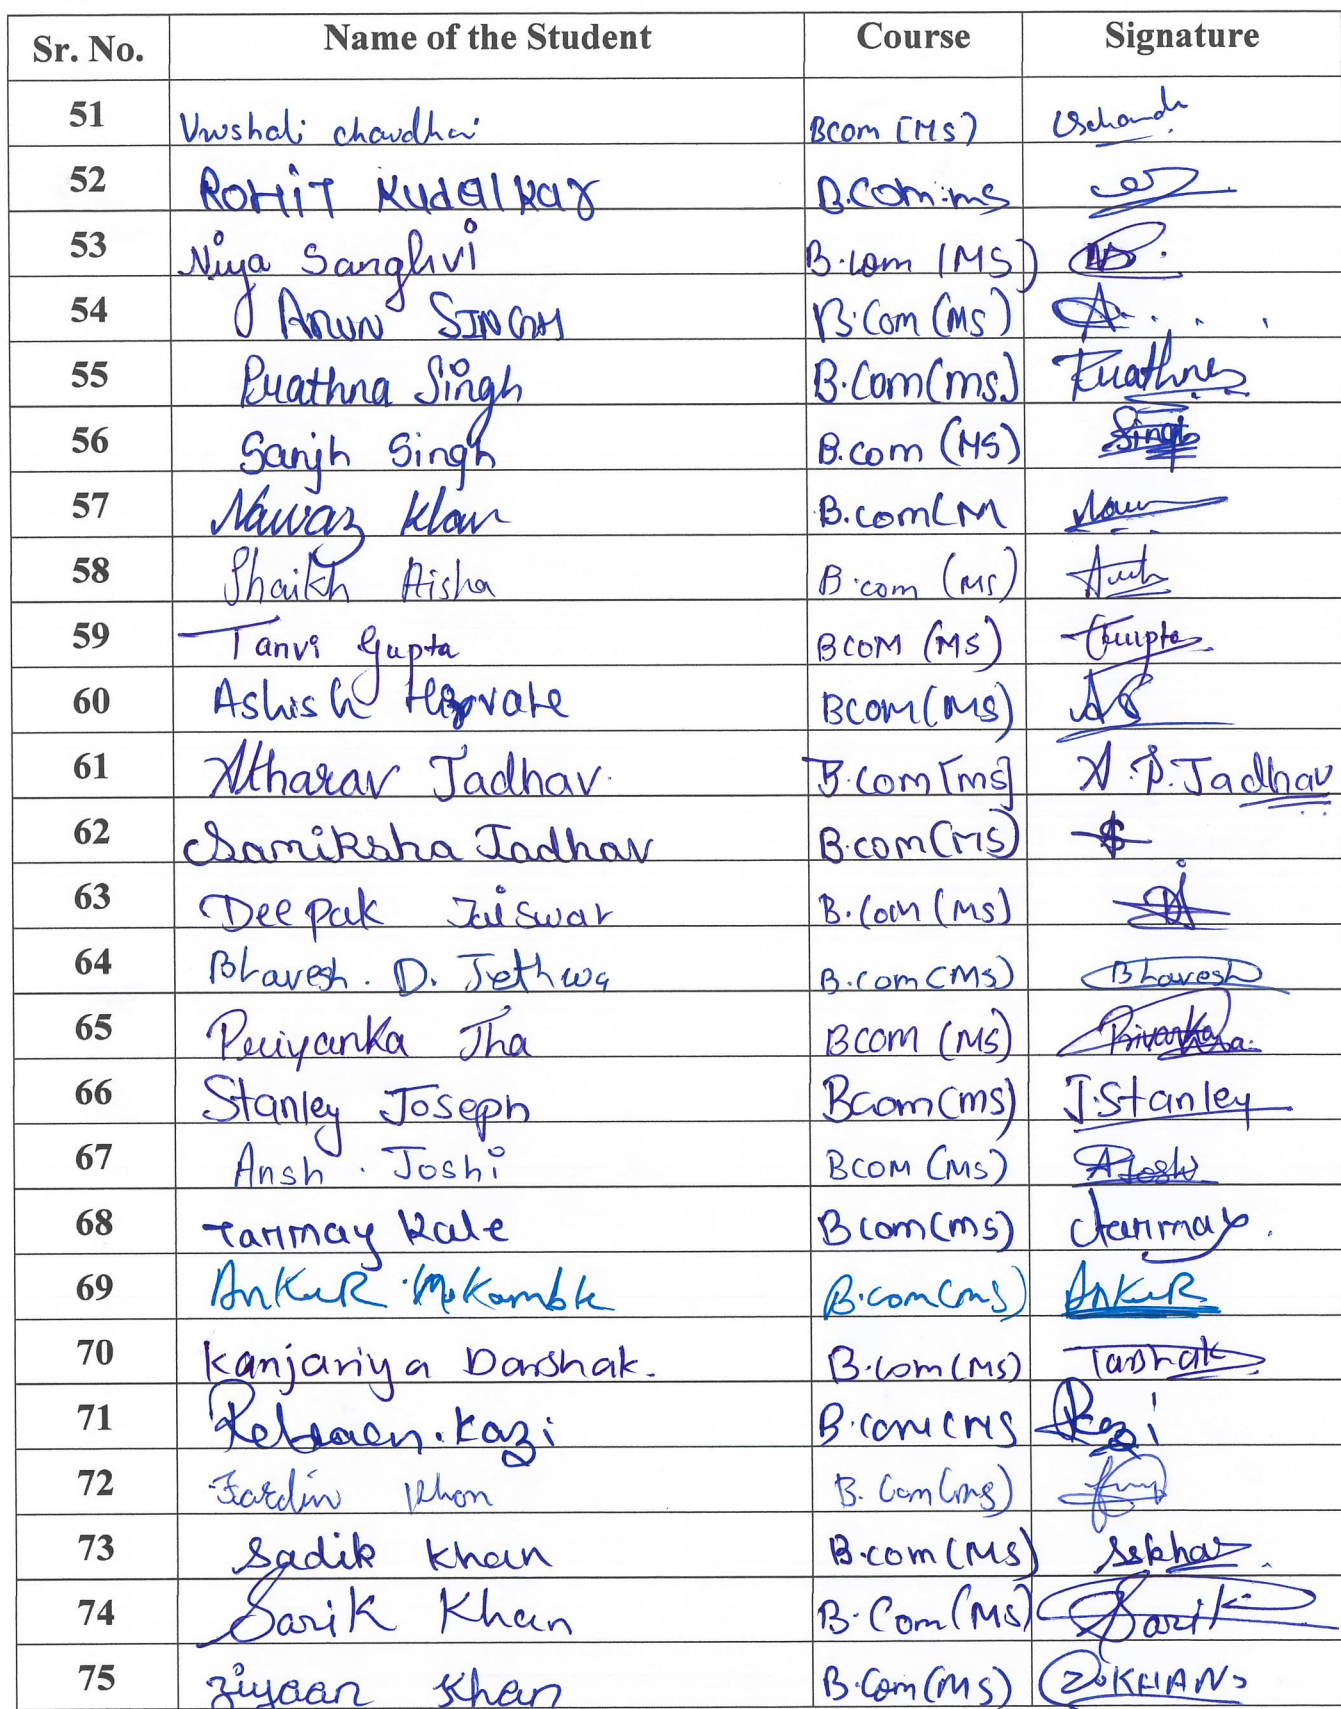 Sr. No. Name of the Student Course Signature
51 Vrushali chaudhari Bcom (MS)
52 ROHIT KUdalkar B.Com.ms
53 Niya Sanghvi B.com (MS)
54 Arun SINGH B.Com (MS) A
55 Prathna Singh B.Com(ms) Prathna
56 Sanjh Singh B.com (MS) Singh
57 Nawaz khan B.com(M
58 Shaikh Aisha B.com (MS)
59 Tanvi Gupta BCOM (MS) Gupta
60 Ashish BCOM(MS)
61 Atharav Jadhav. B.com [ms] A.P.Jadhav
62 Samiksha Jadhav B.com(MS)
63 Deepak Jaiswar B.Com (MS)
64 Bhavesh. D. Jethwa B.com(MS) Bhavesh
65 Priyanka Jha BCOM (MS) Priyanka
66 Stanley Joseph Bcom(ms) J.Stanley
67 Ansh. Joshi BCOM (MS) AJoshi
68 Tanmay Kale Bcom(ms) Tanmay.
69 AnKuR M. Kamble B.com(ms) AnKuR
70 Kanjariya Darshak. B.com(MS)
71 Kazi B.com(MS Kazi
72 Fardin Khan B. Com(ms)
73 Sadik khan B.com(MS)
74 Sarik Khan B.Com(MS) Sarik
75 Ziyaan Khan B.Com(MS) Z.KHAN